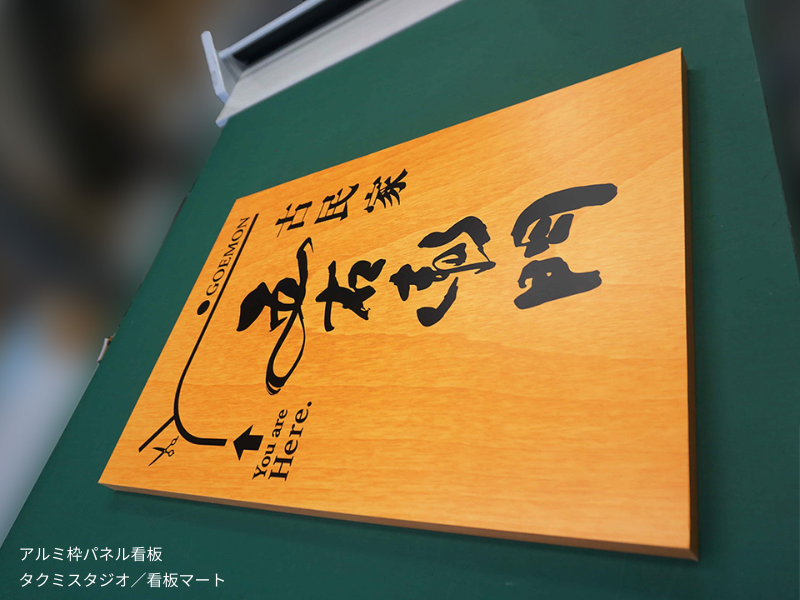 古民家
五右衛門
GOEMON
You are
Here.
アルミ枠パネル看板
タクミスタジオ／看板マート